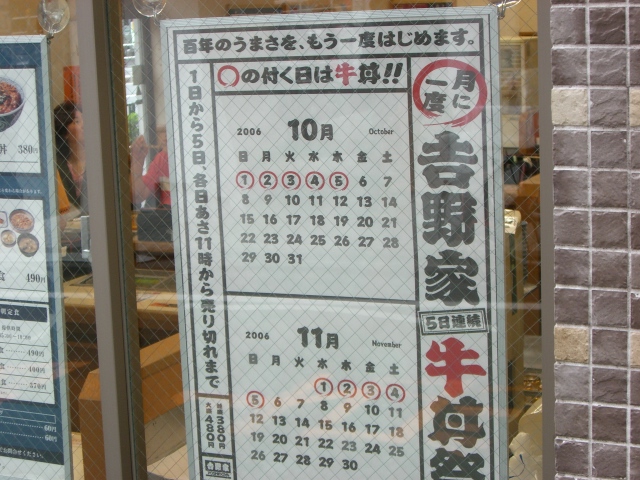 百年のうまさを、もう一度はじめます。
○の付く日は牛丼!!
月に一度
吉野家
5日連続
牛丼祭
1日から5日 各日あさ11時から売り切れまで
2006 10月 October
日 月 火 水 木 金 土
1 2 3 4 5 6 7
8 9 10 11 12 13 14
15 16 17 18 19 20 21
22 23 24 25 26 27 28
29 30 31
2006 11月 November
日 月 火 水 木 金 土
1 2 3 4
5 6 7 8 9 10 11
12 13 14 15 16 17 18
19 20 21 22 23 24 25
26 27 28 29 30
並盛380円
大盛480円
吉野家
丼 380
食 490
490
490
370
60円
60円